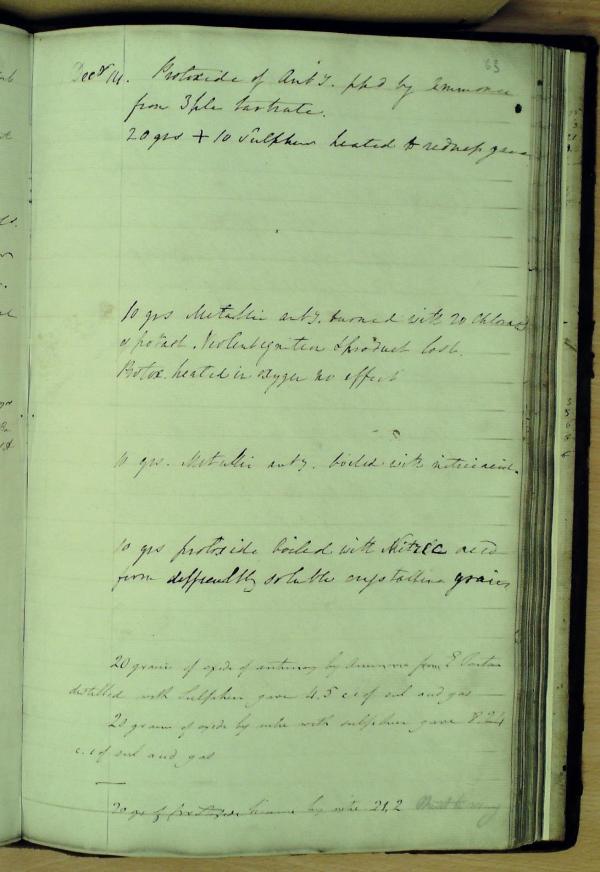 63
Decr 14. Protoxide of Anty. ppd by Ammonia
from 3ple tartrate.
20 grs + 10 Sulphur heated to redness gave
10 grs Metallic anty. burned with 20 Chlorate
of potash. Violent ignition & product lost.
Protox. heated in oxygen no effect
10 grs. Metallic anty. boiled with nitric acid.
10 grs protoxide boiled with Nitric acid
from difficultly soluble crystalline grains
20 grains of oxide of antimony by Ammonia from E Tartar
distilled with Sulphur gave 4.5 c i of sul acid gas
20 grains of oxide by nitre with sulphur gave 8.24
c. i of sul acid gas
20 grs of by nitre 21,2